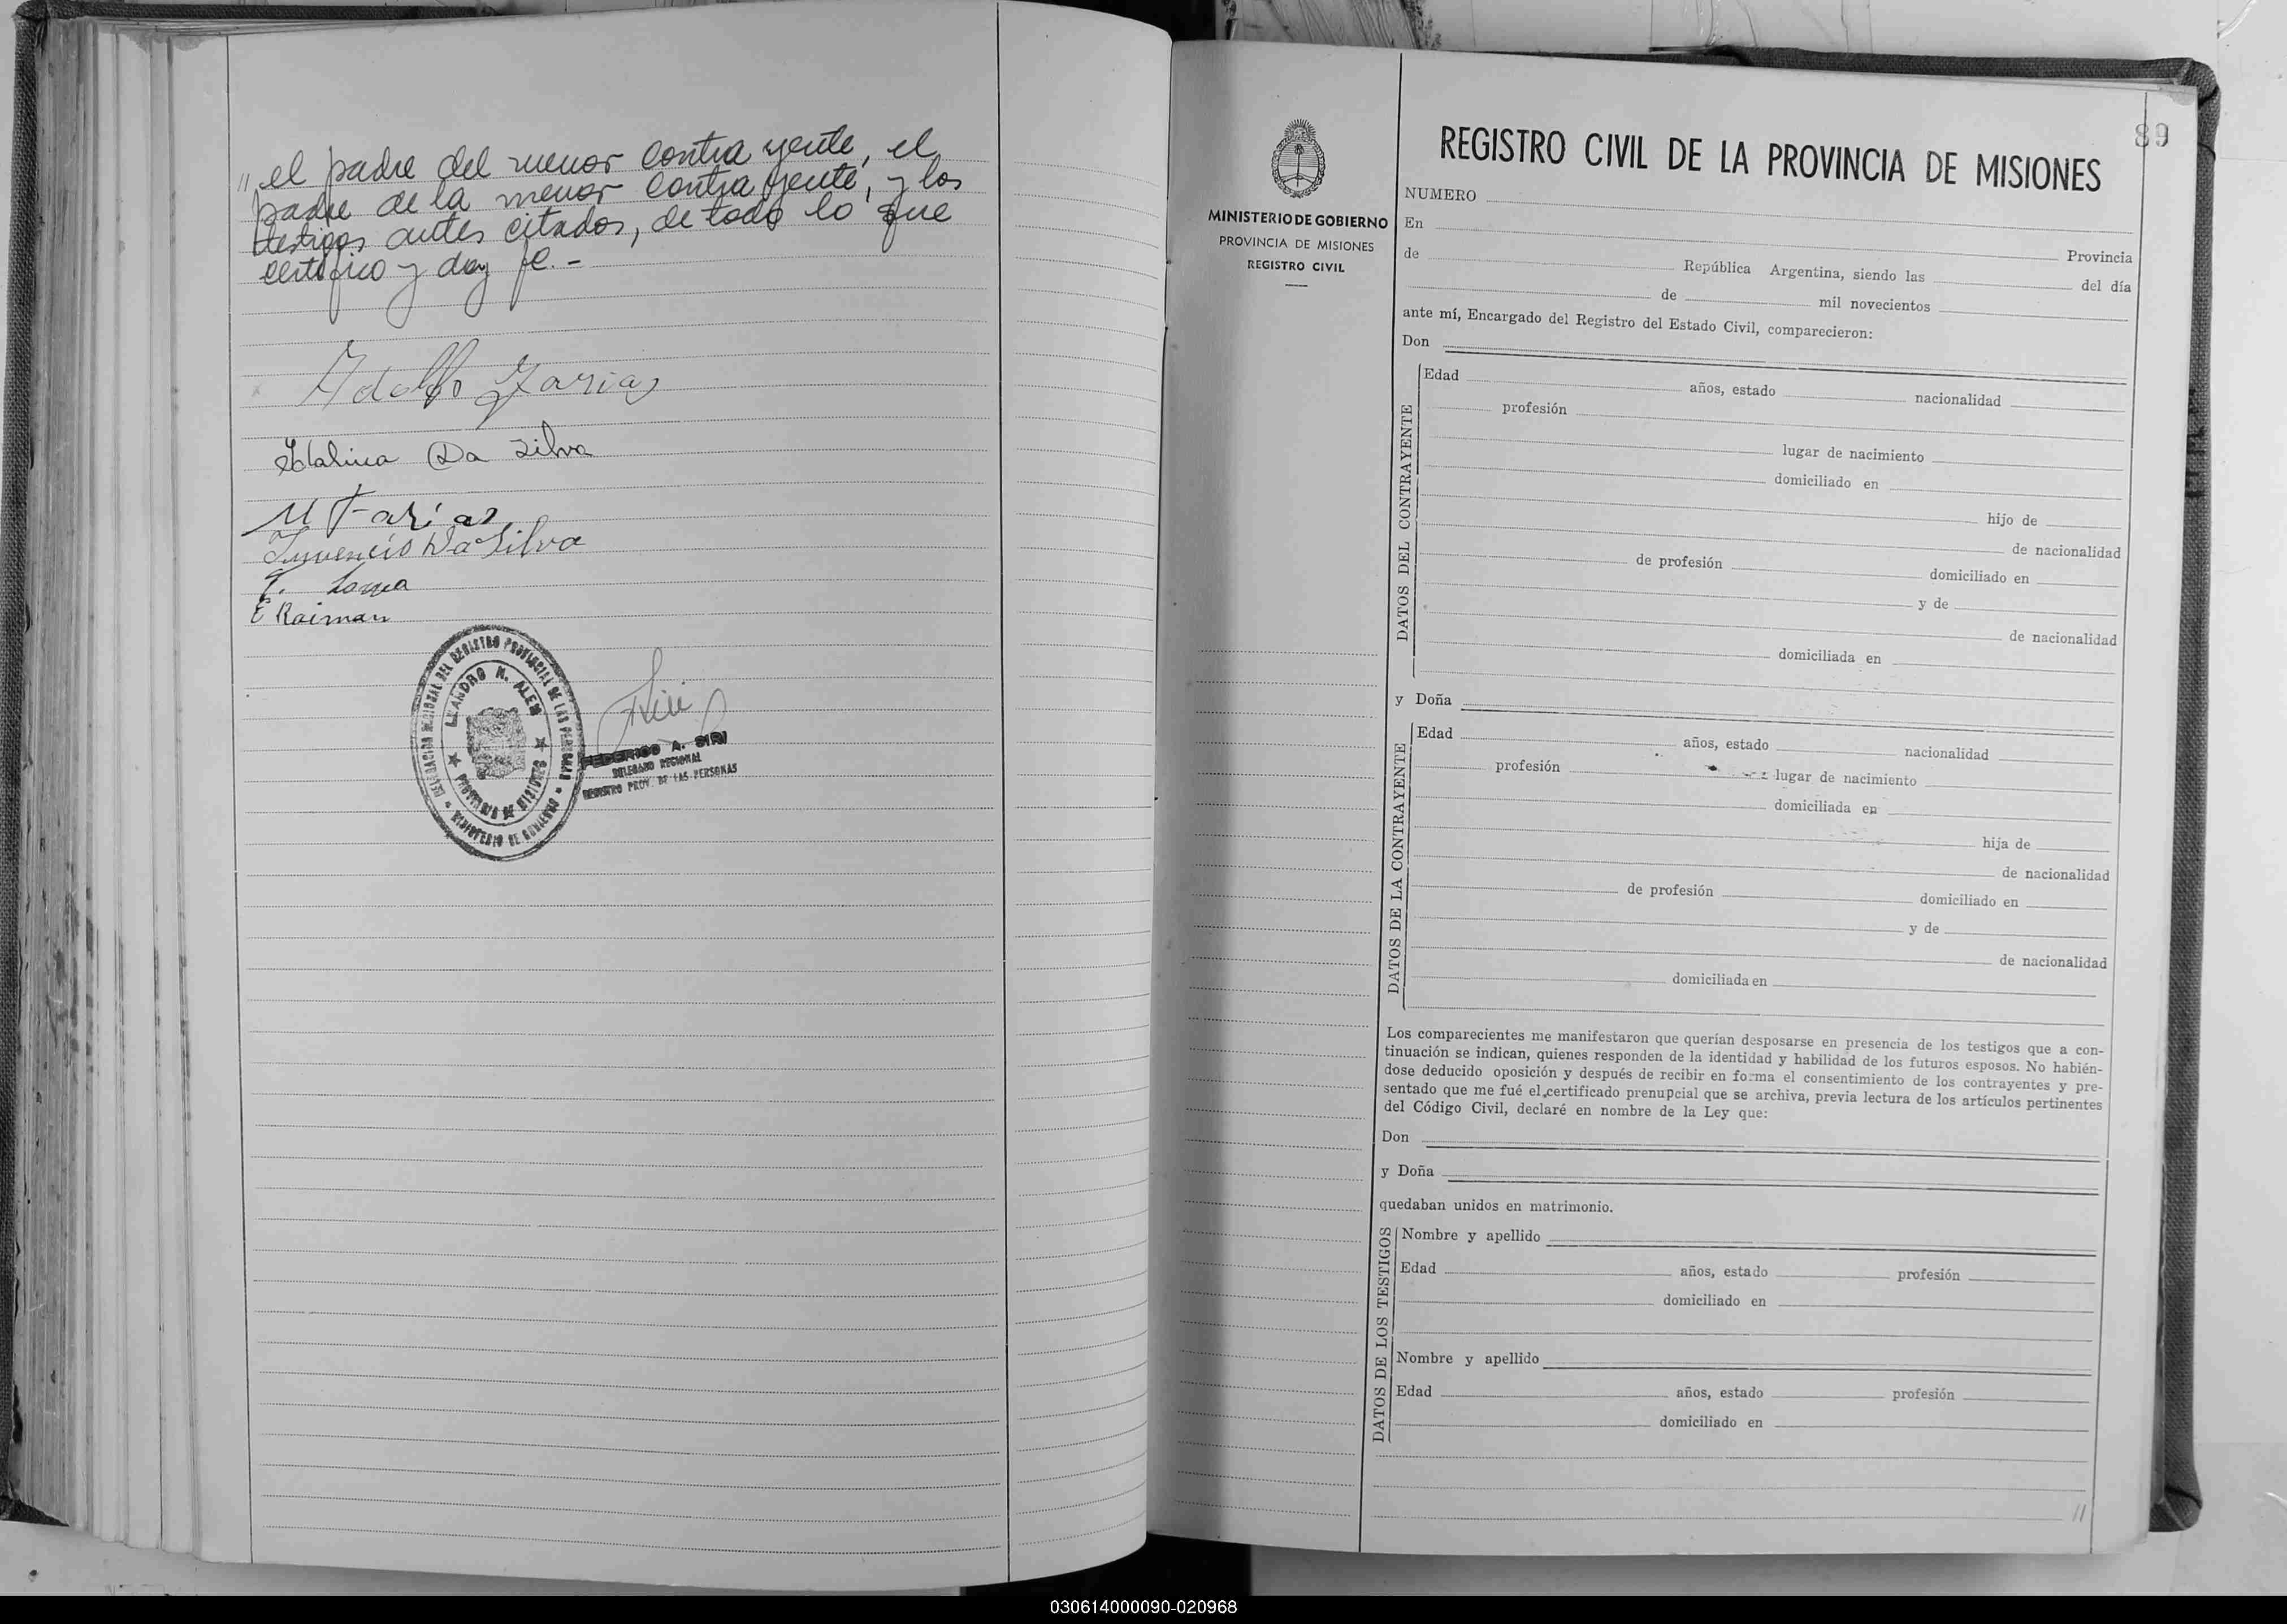 " el padre del menor contrayente, el
padre de la menor contrayente, y los
testigos antes citados, de todo lo que
certifico y doy fe.-
Adolfo Farias
Idalina Da Silva
M Farias
Juvencio Da Silva
E Raiman
DELEGACION REGIONAL DEL REGISTRO PROVINCIAL DE LAS PERSONAS
LEANDRO N. ALEM
PROVINCIA DE MISIONES
MINISTERIO DE GOBIERNO
FEDERICO A. SIRI
DELEGADO REGIONAL
REGISTRO PROV. DE LAS PERSONAS
89
MINISTERIO DE GOBIERNO
PROVINCIA DE MISIONES
REGISTRO CIVIL
REGISTRO CIVIL DE LA PROVINCIA DE MISIONES
NUMERO
En Provincia
de República Argentina, siendo las del día
de mil novecientos
ante mí, Encargado del Registro del Estado Civil, comparecieron:
Don
DATOS DEL CONTRAYENTE
Edad años, estado nacionalidad
profesión
lugar de nacimiento
domiciliado en
hijo de
de nacionalidad
de profesión domiciliado en
y de
de nacionalidad
domiciliada en
y Doña
DATOS DE LA CONTRAYENTE
Edad años, estado nacionalidad
profesión lugar de nacimiento
domiciliada en
hija de
de nacionalidad
de profesión domiciliado en
y de
de nacionalidad
domiciliada en
Los comparecientes me manifestaron que querían desposarse en presencia de los testigos que a con-
tinuación se indican, quienes responden de la identidad y habilidad de los futuros esposos. No habién-
dose deducido oposición y después de recibir en forma el consentimiento de los contrayentes y pre-
sentado que me fué el certificado prenupcial que se archiva, previa lectura de los artículos pertinentes
del Código Civil, declaré en nombre de la Ley que:
Don
y Doña
quedaban unidos en matrimonio.
DATOS DE LOS TESTIGOS
Nombre y apellido
Edad años, estado profesión
domiciliado en
Nombre y apellido
Edad años, estado profesión
domiciliado en
//
030614000090-020968